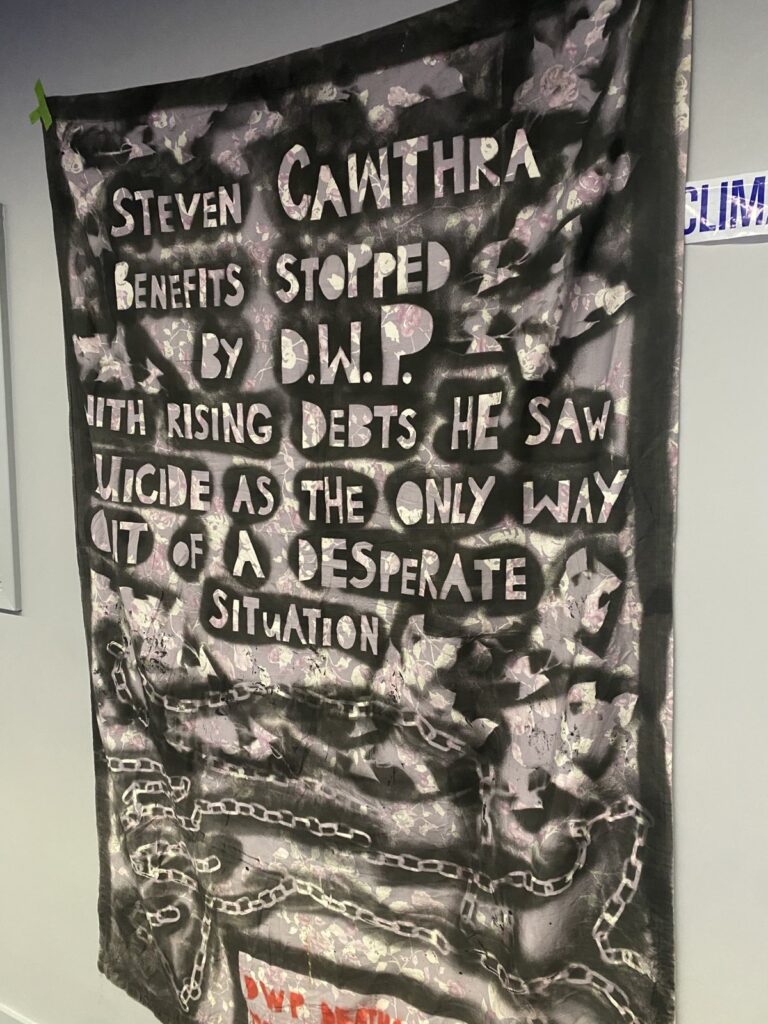 STEVEN CAWTHRA
BENEFITS STOPPED
BY D.W.P.
WITH RISING DEBTS HE SAW
SUICIDE AS THE ONLY WAY
OUT OF A DESPERATE
SITUATION
D.W.P. DEATHS
CLIMA